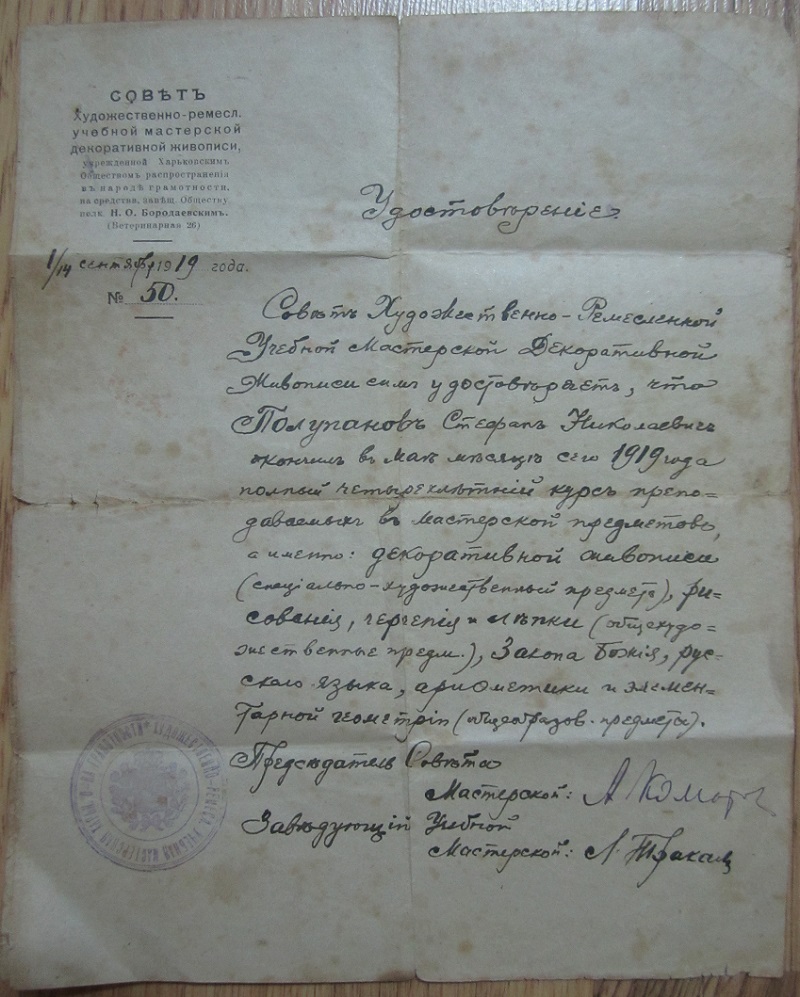 СОВѢТЪ
Художественно-ремесл.
учебной мастерской
декоративной живописи,
учрежденной Харьковскимъ
Обществомъ распространенія
въ народѣ грамотности,
на средства, завѣщ. Обществу
полк. Н. О. Бородаевскимъ.
(Ветеринарная 26)
1/14 сентября 1919 года.
№ 50.
Удостовѣреніе.
Совѣтъ Художественно-Ремесленной
Учебной Мастерской Декоративной
Живописи симъ удостовѣряетъ, что
Полупановъ Стефанъ Николаевичъ
окончилъ въ маѣ мѣсяцѣ сего 1919 года
полный четырехлѣтній курсъ препо-
даваемыхъ въ мастерской предметовъ,
а именно: декоративной живописи
(спеціально-художественный предметъ), ри-
сованія, черченія и лѣпки (общехудо-
жественные предм.), Закона Божія, рус-
скаго языка, ариѳметики и элемен-
тарной геометріи (общеобразов. предметы).
Предсѣдатель Совѣта
Мастерской: А
Завѣдующій Учебной
Мастерской: Л.